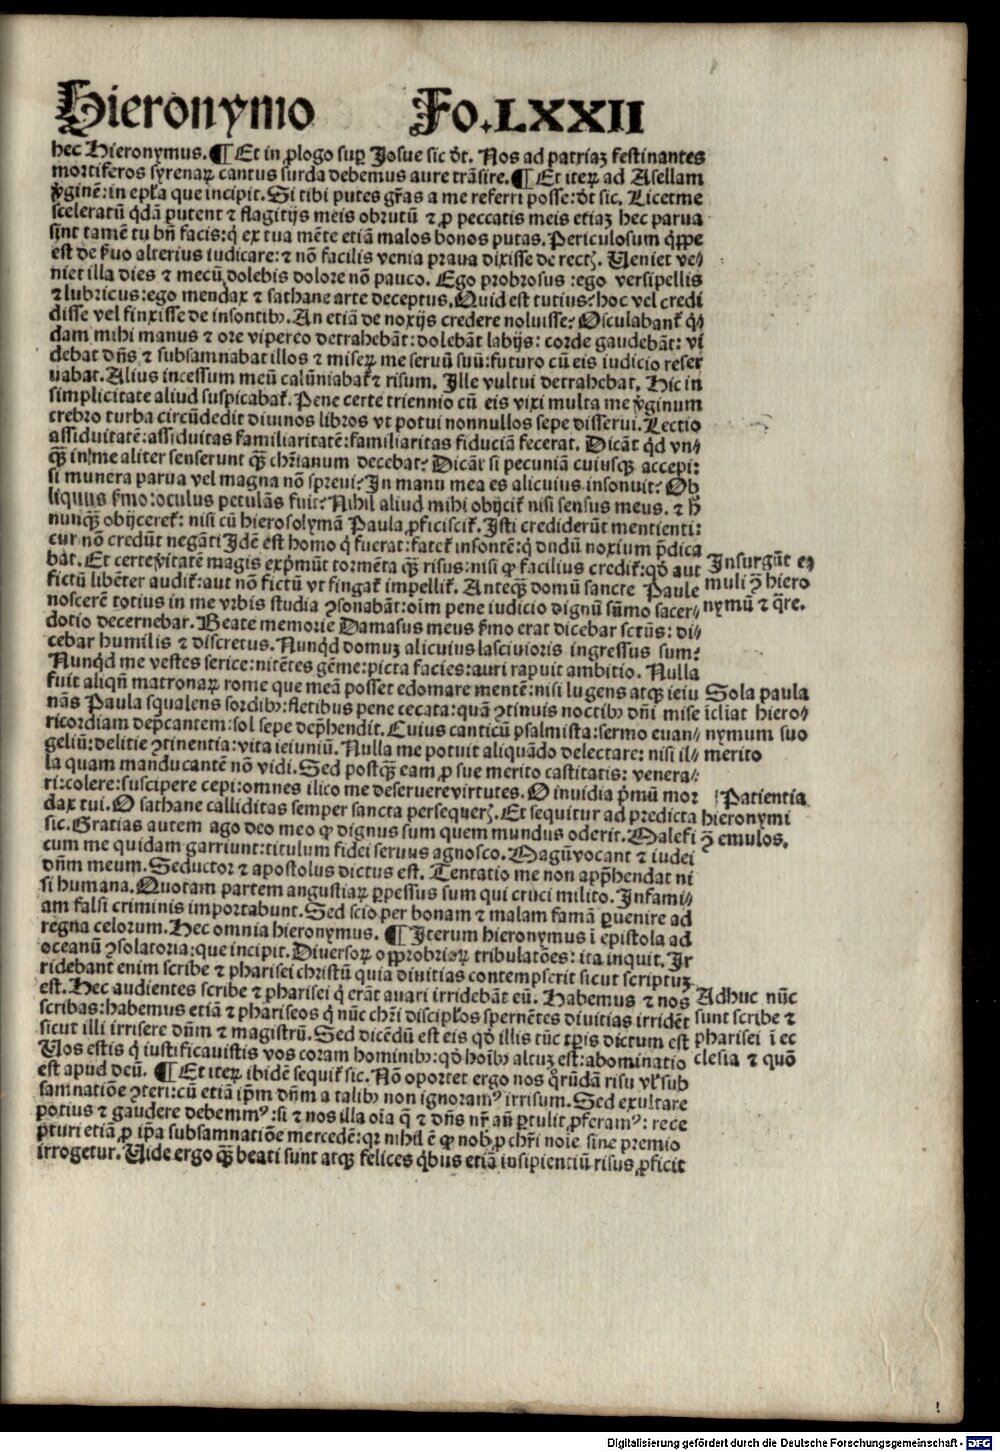 Hieronymo Fo.LXXII
hec Hieronymus.¶Et in ꝓlogo suꝑ Josue sic dt̄. Nos ad patriaꝫ festinantes
mortiferos syrenaꝝ cantus surda debemus aure trāsire.¶Et iteꝝ ad Asellam
v̓ginē:in epl̓a que incipit.Si tibi putes gr̄as a me referri posse:dt̄ sic. Licet me
sceleratū q̇dā putent ⁊ flagitijs meis obrutū ⁊ ꝓ peccatis meis etiaꝫ hec parua
sint tamē tu bn̄ facis:q̇ ex tua mēte etiā malos bonos putas.Periculosum q̇ꝑpe
est de ẜuo alterius iudicare:⁊ nō facilis venia praua dixisse de rectꝭ. Ueniet ve⸗
niet illa dies ⁊ mecū dolebis dolore nō pauco. Ego probrosus :ego versipellis
⁊ lubricus:ego mendax ⁊ sathane arte deceptus.Quid est tutius?hoc vel credi
disse vel finxisse de insontibꝰ.An etiā de noxijs credere noluisse?Osculabant̓ q̇⸗
dam mihi manus ⁊ ore vipereo detrahebāt:dolebāt labijs: corde gaudebāt: vi
debat dn̄s ⁊ subsamnabat illos ⁊ miseꝝ me seruū suū:futuro cū eis iudicio reser
uabat.Alius incessum meū calūniabat̓ ⁊ risum. Ille vultui detrahebat. Hic in
simplicitate aliud suspicabat̓.Pene certe triennio cū eis vixi multa me v̓ginum
crebro turba circūdedit diuinos libros vt potui nonnullos sepe disserui.Lectio
assiduitatē:assiduitas familiaritatē:familiaritas fiduciā fecerat. Dicāt q̇d vn⸗
qꝫ̄ in me aliter senserunt qꝫ̄ chr̄ianum decebat? Dicāt si pecuniā cuiusqꝫ accepi:
si munera parua vel magna nō spreui?In manu mea es alicuius insonuit? Ob
liquus ẜmo:oculus petulās fuit? Nihil aliud mihi obijcit̓ nisi sensus meus. ⁊ h̄
nunqꝫ̄ obijceret̓: nisi cū hierosolymā Paula ꝓficiscit̓.Isti crediderūt mentienti:
cur nō credūt negāti Idē est homo q̇ fuerat:fatet̓ insontē:q̇ dudū noxium p̄dica
bat. Et certe v̓itatē magis exp̓mūt tormēta qꝫ̄ risus:nisi ꝙ facilius credit̓:qd̓ aut
fictū libēter audit̓:aut nō fictū vt fingat̓ impellit̓. Anteqꝫ̄ domū sancte Paule
noscerē totius in me vrbis studia ↄsonabāt:oīm pene iudicio dignū sūmo sacer⸗
dotio decernebar. Beate memorie Damasus meus ẜmo erat dicebar sctūs: di⸗
cebar humilis ⁊ discretus. Nunq̇d domuꝫ alicuius lasciuioris ingressus sum?
Nunq̇d me vestes serice:nitētes gēme:picta facies:auri rapuit ambitio. Nulla
fuit aliqn̄ matronaꝝ rome que meā posset edomare mentē:nisi lugens atqꝫ ieiu
nās Paula squalens sordibꝰ:fletibus pene cecata:quā ↄtinuis noctibꝰ dn̄i mise
ricordiam dep̄cantem:sol sepe dep̄hendit. Cuius canticū psalmista:sermo euan⸗
geliū:delitie ↄtinentia:vita ieiuniū. Nulla me potuit aliquādo delectare: nisi il⸗
la quam manducantē nō vidi. Sed postqꝫ̄ eam ꝓ sue merito castitatis: venera⸗
ri:colere:suscipere cepi:omnes ilico me deseruere virtutes. O inuidia p̓mū mor
dax tui. O sathane calliditas semper sancta persequerꝭ. Et sequitur ad predicta
sic.Gratias autem ago deo meo ꝙ dignus sum quem mundus oderit. Malefi
cum me quidam garriunt:titulum fidei seruus agnosco. Magū vocant ⁊ iudei
dn̄m meum. Seductor ⁊ apostolus dictus est. Tentatio me non app̄hendat ni
si humana. Quotam partem angustiaꝝ ꝑpessus sum qui cruci milito. Infami⸗
am falsi criminis importabunt. Sed scio per bonam ⁊ malam famā ꝑuenire ad
regna celorum. Hec omnia hieronymus. ¶ Iterum hieronymus ī epistola ad
oceanū ↄsolatoria:que incipit. Diuersoꝝ opprobrioꝝ tribulatōes: ita inquit. Ir
ridebant enim scribe ⁊ pharisei christū quia diuitias contempserit sicut scriptuꝫ
est. Hec audientes scribe ⁊ pharisei q̇ erāt auari irridebāt eū. Habemus ⁊ nos
scribas:habemus etiā ⁊ phariseos q̇ nūc chr̄i discipl̓os spernētes diuitias irridēt
sicut illi irrisere dn̄m ⁊ magistrū. Sed dicēdū est eis qd̓ illis tūc tꝑis dictum est
Uos estis q̇ iustificauistis vos coram hominibꝰ:qd̓ hoīb̓ altuꝫ est:abominatio
est apud deū. ¶ Et iteꝝ ibidē sequit̓ sic. Nō oportet ergo nos qͦrūdā risu vl̓ sub
samnatiōe ↄteri:cū etiā ip̄m dn̄m a talibꝰ non ignoramꝰ irrisum. Sed exultare
potius ⁊ gaudere debemmꝰ:si ⁊ nos illa oīa q̄ ⁊ dn̄s nr̄ an̄ ꝑtulit ꝓferamꝰ: rece
pturi etiā ꝓ ip̄a subsamnatiōe mercedē:qꝛ nihil ē ꝙ nob̓ ꝓ chr̄i noīe sine premio
irrogetur. Uide ergo qꝫ̄ beati sunt atqꝫ felices q̇bus etiā insipientiū risus ꝓficit
Insurgūt e⸗
muli ↄ̄ hiero
nymū ⁊ q̄re.
Sola paula
īcliat hiero⸗
nymum suo
merito
Patientia
hieronymi
ↄ̄ emulos.
Adhuc nūc
sunt scribe ⁊
pharisei ī ec
clesia ⁊ quō
Digitalisierung gefördert durch die Deutsche Forschungsgemeinschaft - DFG